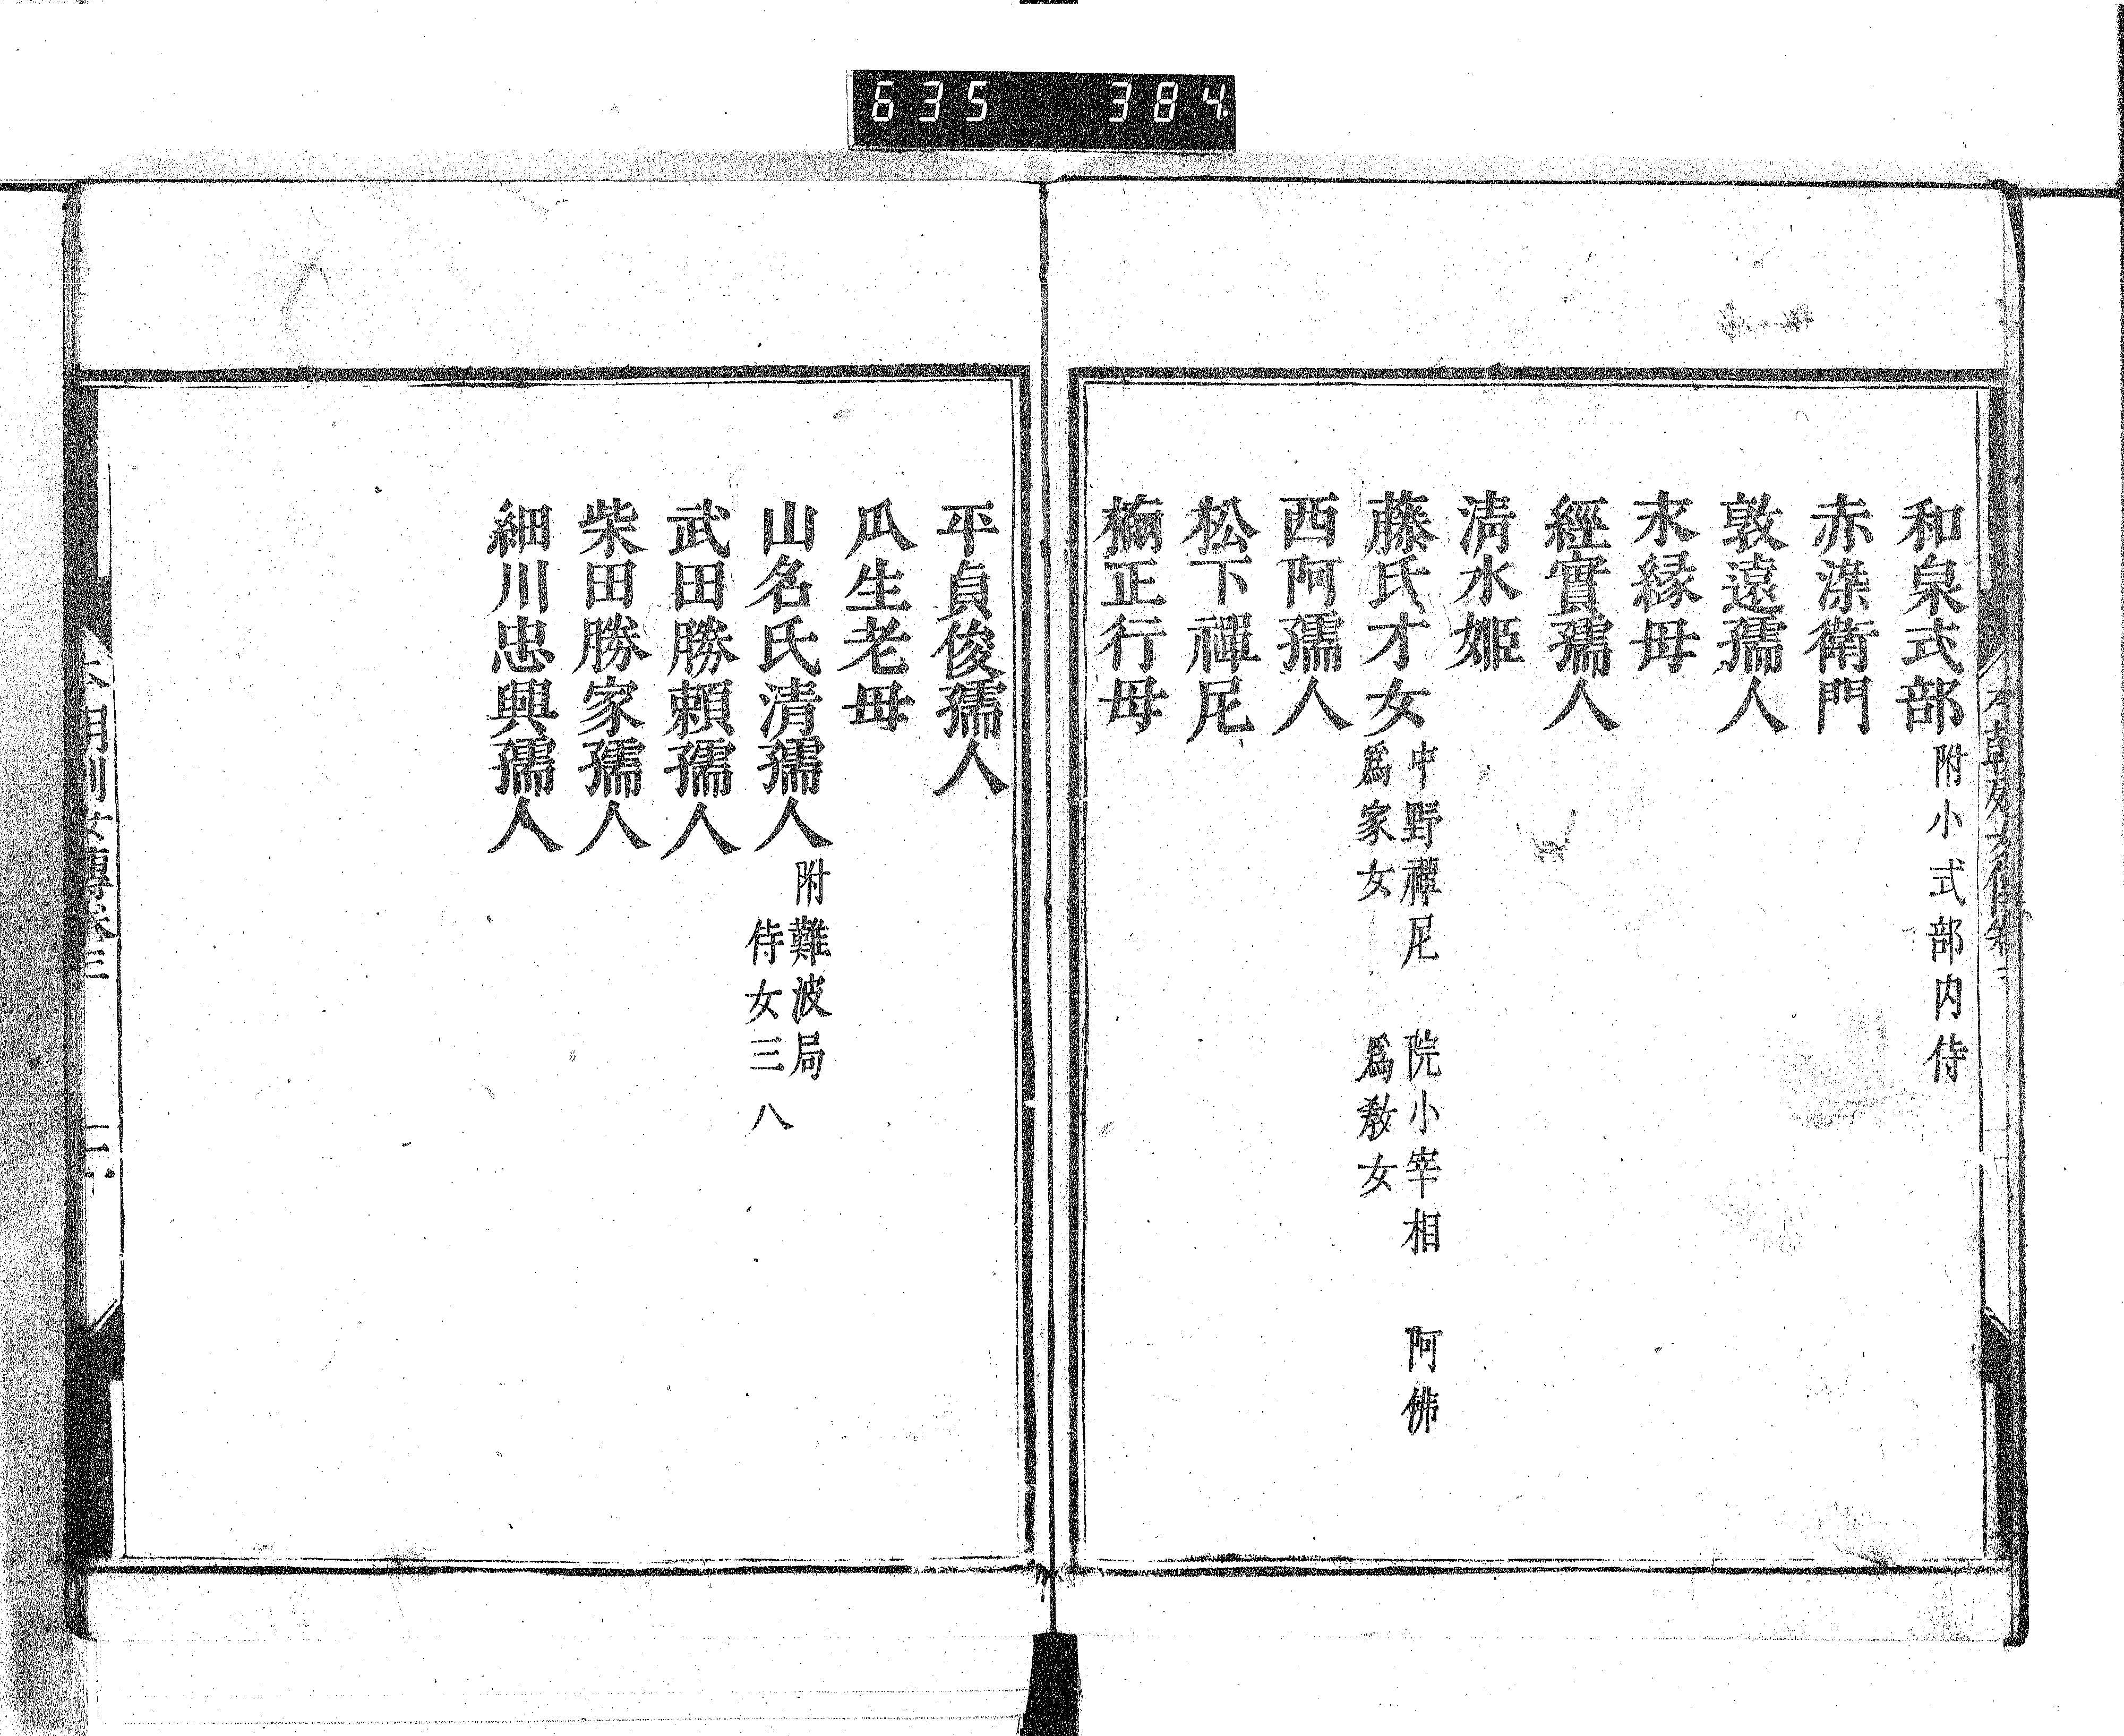 635 384
和泉式部 附小式部内侍
赤染衛門
敦遠孺人
永縁母
經實孺人
清水姬
藤氏才女 中野禪尼 院小宰相 阿佛
爲家女 爲教女
西阿孺人
松下禪尼
楠正行母
平貞俊孺人
瓜生老母
山名氏清孺人 附難波局
侍女三八
武田勝賴孺人
柴田勝家孺人
細川忠興孺人